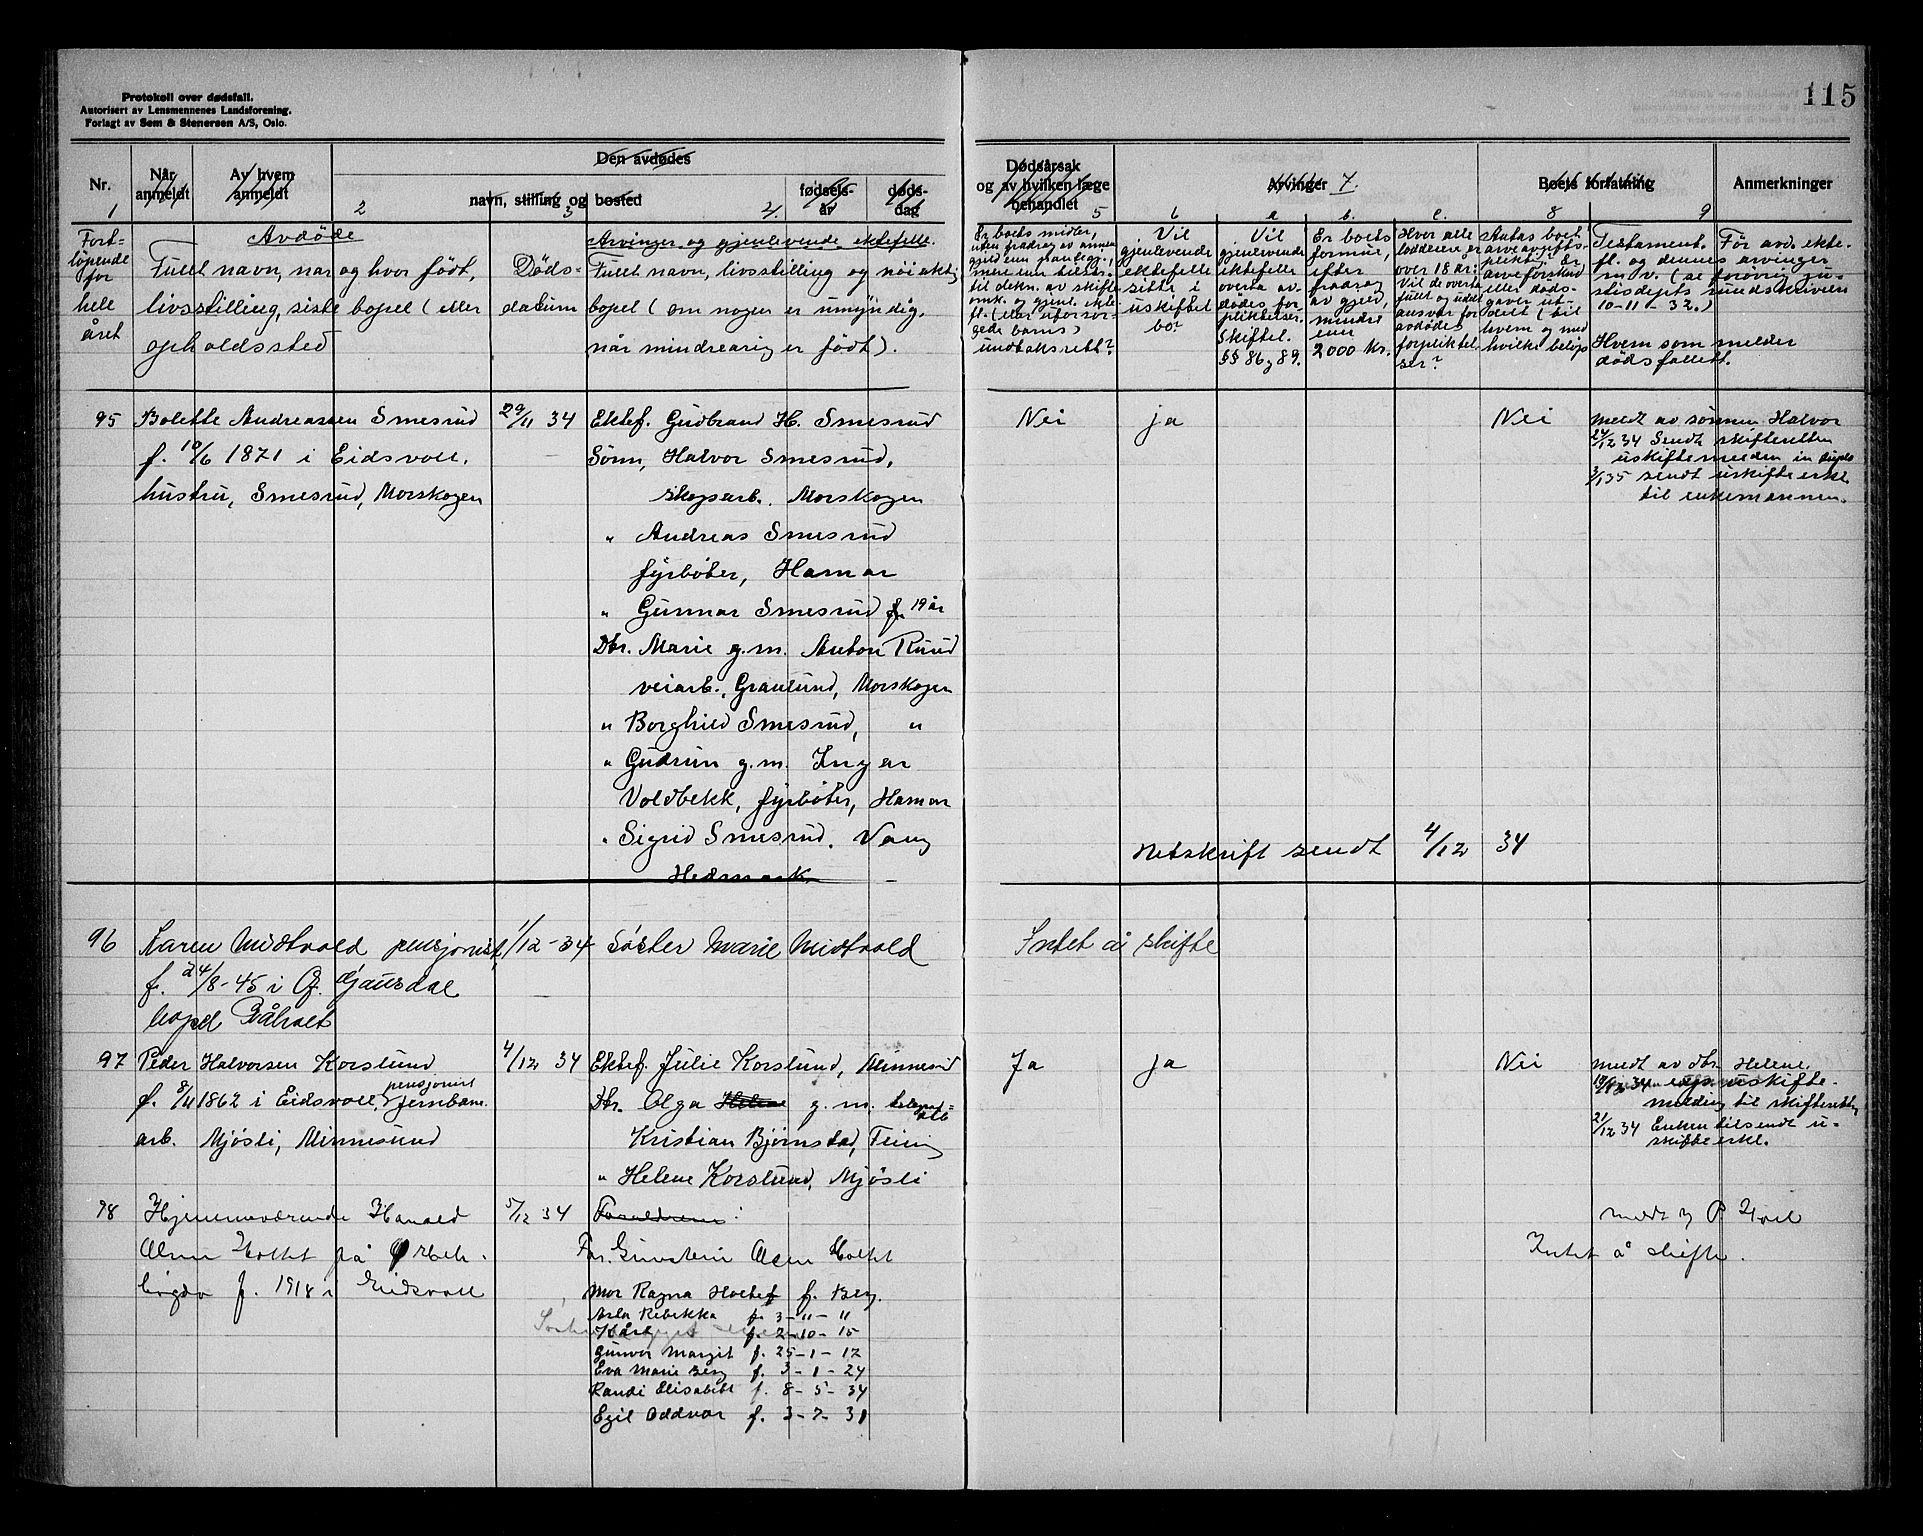 115
Protokoll over dødsfall.
Autorisert av Lensmennenes Landsforening.
Forlagt av Sem & Stenersen A/S, Oslo.
Nr.
Når anmeldt
Av hvem anmeldt
Den avdødes
navn, stilling og bosted
fødsels-år
døds-dag
Dødsårsak og av hvilken læge behandlet
Arvinger 7.
Boets forfatning
Anmerkninger
1 2 3 4. 5 6 a b. c. 8 9
Fort-
løpende
for
hele
året
Avdøde
Fullt navn, nar og hvor født,
livsstilling, siste bopel (eller
opholdssted
Døds-
datum
Arvinger og gjenlevende ektefelle.
Fullt navn, livsstilling og nøiaktig
bopel (om nogen er umyndig,
når mindreårig er født).
Er boets midler,
uten fradrag av annen
gjeld enn
mere enn tilstr.
til dekn. av skifte
omk. og gjenl. ekte
f. (eller uforsør-
gede barns)
undtaksrett?
Vil
gjenlevende
ektefelle
sitte i
uskiftet
bo?
Vil
gjenlevende
ektefelle
overta av-
dødes for-
pliktelser.
Skiftel.
§§ 86 og 89.
Er boets
formue,
efter
fradrag
av gjeld,
mindre
enn
2000 kr.
Hvor alle
loddeiere er
over 18 år:
Vil de overta
fullt og udelt
ansvar for
avdødes
forpliktel-
ser?
Antas boet
arveavgifts-
pliktig? Er
arveforskud
eller døds-
gaver ut-
delt (til
hvem og med
hvilke beløp
Testament. For avd. ekte-
fl. og dennes arvinger
m. v. (se forøvrig ju-
stisdepts rundskriven
10-11-32.)
Hvem som melder
dødsfallet.
95
Bolette Andreassen Smesrud
f. 10/6 1871 i Eidsvoll,
hustru, Smesrud, Morskogen
29/11 34
Ektef. Gudbrand H. Smesrud
Sønn, Halvor Smesrud,
skogsarb. Morskogen
" Andreas Smesrud
fyrbøter, Hamar
" Gunnar Smesrud f. 19 år
Dtr. Marie g.m. Anton Ruud
veiarb., Granlund, Morskogen
" Borghild Smesrud, "
" Gudrun g.m. Ingar
Voldbekk, fyrbøter, Hamar
" Sigrid Smesrud. Vang
Hedmark.
Nei
ja
Nei
meldt av sønnen Halvor
24/12 34 Sendt skifteretten
uskiftemelden in dupl.
3/1 35 sendt uskifteerkl.
til enkemannen.
Netskrift sendt 4/12 34
96
Karen Midtvold pensjonist,
f. 24/8-45 i Ø. Gausdal
bopel Råholt
1/12-34
Søster Marie Midtvold
Intet å skifte
97
Peder Halvorsen Korslund
f. 8/11 1862 i Eidsvoll, pensjonist jernbane.
arb. Mjøsli, Minnesund
4/12 34
Ektef. Julie Korslund, Minnesund
Dtr. Olga Helene g.m.
Kristian Bjørnstad, Feiring
" Helene Korslund, Mjøsli
Ja
ja
Nei
meldt av dtr. Helene,
19/12 34 uskifte-
melding til skifteretten
21/12 34 Enken tilsendt u-
skifteerkl.
98
Hjemmeværende Harald
Olsen Holtet på Ørbek-
bigda f. 1918 i Eidsvoll
5/12 34
Foreldrene:
Far. Olsen Holtet
Mor Ragna Holtet f. Berg.
Asta Rebekka f. 3-11-11
Kåre f. 2-10-15
Gunvor Margit f. 25-1-17
Eva Marie Berg f. 3-1-24
Randi Elisabeth f. 8-5-34
Egil Oddvar f. 3-7-31
meldt
Intet å skifte.